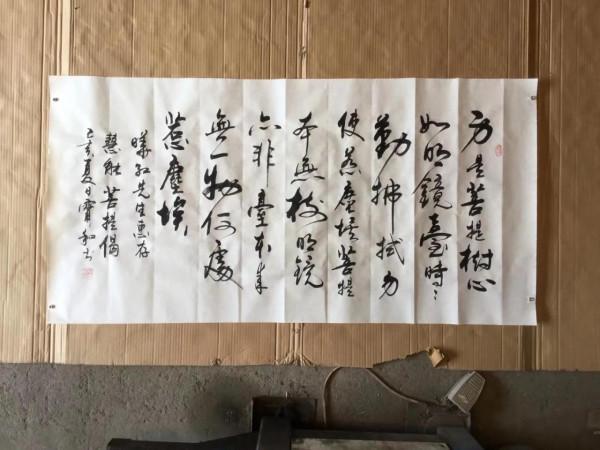 身是菩提樹心
如明鏡臺時〻
勤拂拭勿
使惹塵埃菩提
本無樹明鏡
亦非臺本來
無一物何處
惹塵埃
红先生惠存
慧能菩提偈
己亥夏日和书